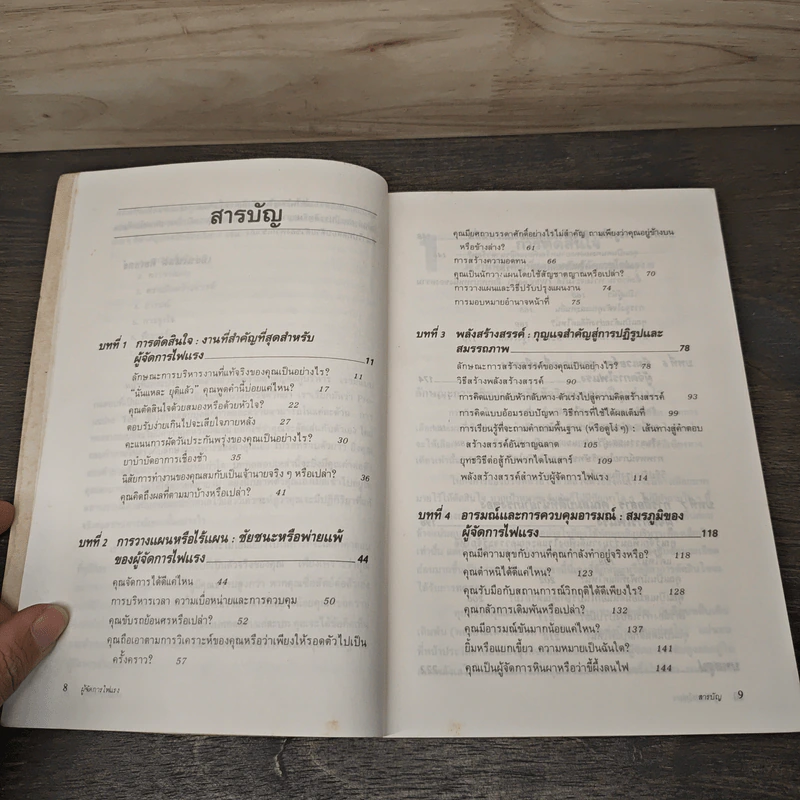 สารบัญ
บทที่ 1 การตัดสินใจ : งานที่สำคัญที่สุดสำหรับ
ผู้จัดการไฟแรง 11
ลักษณะการบริหารงานที่แท้จริงของคุณเป็นอย่างไร? 11
"นั่นแหละ ยุติแล้ว" คุณพูดคำนี้บ่อยแค่ไหน? 17
คุณตัดสินใจด้วยสมองหรือด้วยหัวใจ? 22
ตอบรับง่ายเกินไปจะเสียใจภายหลัง 27
คะแนนการผัดวันประกันพรุ่งของคุณเป็นอย่างไร? 30
ยาบำบัดอาการเชื่องช้า 35
นิสัยการทำงานของคุณสมกับเป็นเจ้านายจริง ๆ หรือเปล่า? 36
คุณคิดถึงผลที่ตามมาบ้างหรือเปล่า? 41
บทที่ 2 การวางแผนหรือไร้แผน : ชัยชนะหรือพ่ายแพ้
ของผู้จัดการไฟแรง 44
คุณจัดการได้ดีแค่ไหน 44
การบริหารเวลา ความเบื่อหน่ายและการควบคุม 50
คุณขับรถย้อนศรหรือเปล่า? 52
คุณถือเอาตามการวิเคราะห์ของคุณหรือว่าเพียงให้รอดตัวไปเป็น
ครั้งคราว? 57
8 ผู้จัดการไฟแรง
คุณมียศถาบรรดาศักดิ์อย่างไรไม่สำคัญ ถามเพียงว่าคุณอยู่ข้างบน
หรือข้างล่าง? 61
การสร้างความอดทน 66
คุณเป็นนักวางแผนโดยใช้สัญชาตญาณหรือเปล่า? 70
การวางแผนและวิธีปรับปรุงแผนงาน 74
การมอบหมายอำนาจหน้าที่ 75
บทที่ 3 พลังสร้างสรรค์ : กุญแจสำคัญสู่การปฏิรูปและ
สมรรถภาพ 78
ลักษณะการสร้างสรรค์ของคุณเป็นอย่างไร? 78
วิธีสร้างพลังสร้างสรรค์ 90
การคิดแบบกลับหัวกลับหาง-ตัวเร่งไปสู่ความคิดสร้างสรรค์ 93
การคิดแบบอ้อมรอบปัญหา วิธีการที่ใช้ได้ผลเดิมที่ 99
การเรียนรู้ที่จะถามคำถามพื้นฐาน (หรือดูโง่ ๆ) : เส้นทางสู่คำตอบ
สร้างสรรค์อันชาญฉลาด 105
ยุทธวิธีต่อสู้กับพวกไดโนเสาร์ 109
พลังสร้างสรรค์สำหรับผู้จัดการไฟแรง 114
บทที่ 4 อารมณ์และการควบคุมอารมณ์ : สมรภูมิของ
ผู้จัดการไฟแรง 118
คุณมีความสุขกับงานที่คุณกำลังทำอยู่จริงหรือ? 118
คุณตำหนิได้ดีแค่ไหน? 123
คุณรับมือกับสถานการณ์วิกฤติได้ดีเพียงไร? 128
คุณกลัวการเดิมพันหรือเปล่า? 132
คุณมีอารมณ์ขันมากน้อยแค่ไหน? 137
ยิ้มหรือแยกเขี้ยว ความหมายเป็นฉันใด? 141
คุณเป็นผู้จัดการหินผาหรือว่าขี้ผึ้งลนไฟ 144
สารบัญ 9